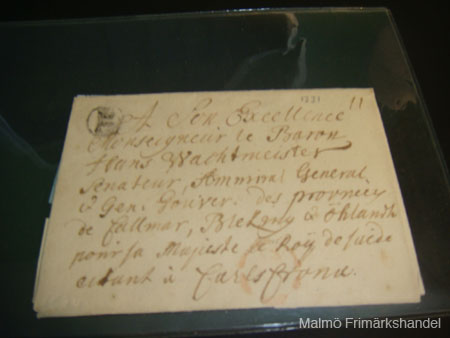 A Son Excellence
Monseigneur le Baron
Hans Wachtmeister
Senateur, Ammiral General
& Gen: Gouver: des provincies
de Callmar, Bleking & Ohlandt
pour sa Majesté le Roÿ de Suede
à Carelscrona.
Malmö Frimärkshandel